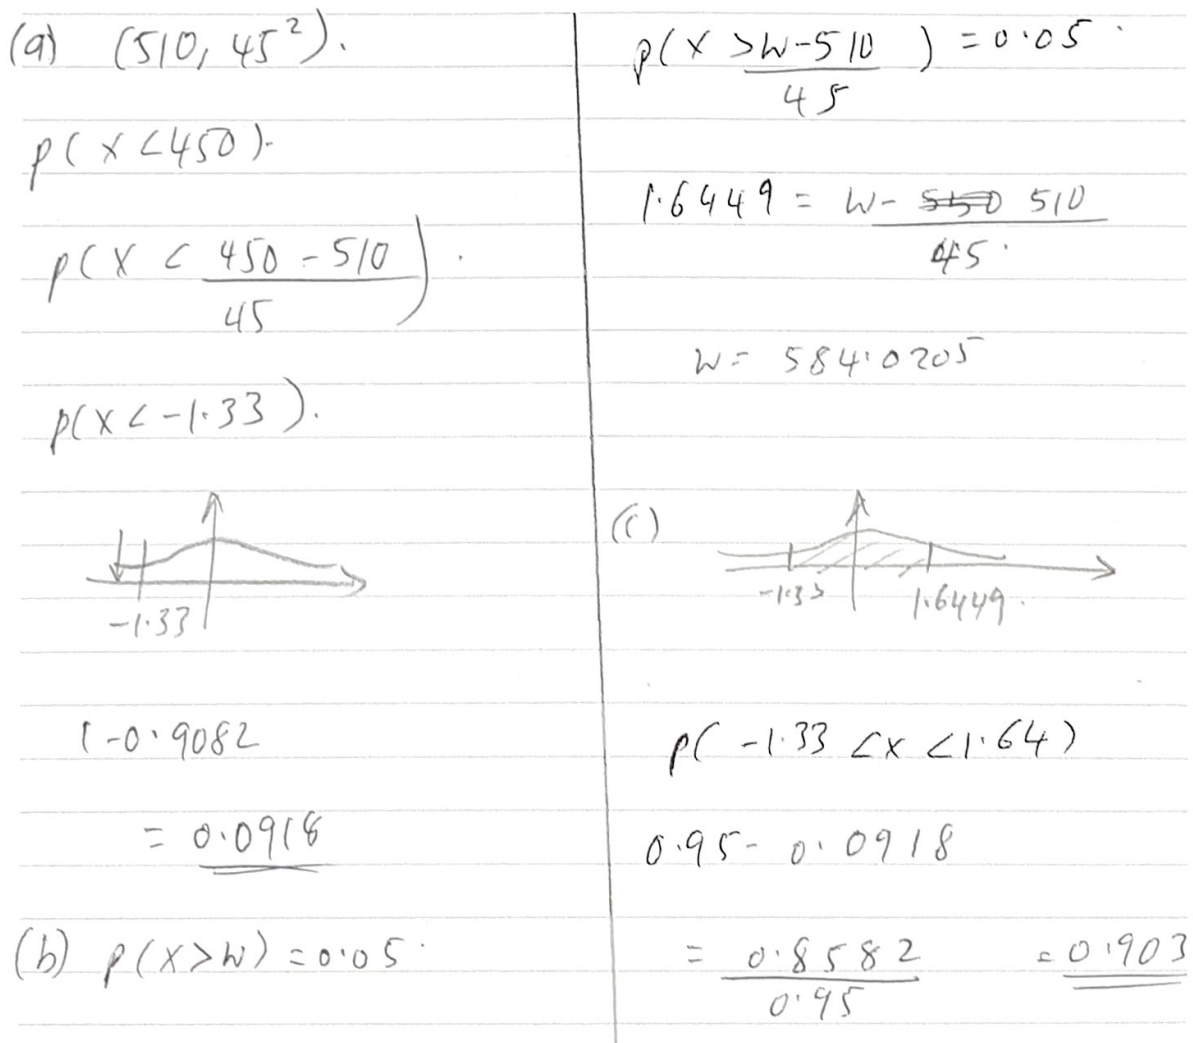 (a) (510, 45²).
p(x < 450).
p(x < (450 - 510)/45).
p(x < -1.33).
-1.33
1 - 0.9082
= 0.0918
(b) p(x > w) = 0.05.
p(x > (w - 510)/45) = 0.05.
1.6449 = (w - ~~550~~ 510)/45.
w = 584.0205
(c)
-1.33 1.6449.
p(-1.33 < x < 1.64)
0.95 - 0.0918
= 0.8582/0.95 = 0.903